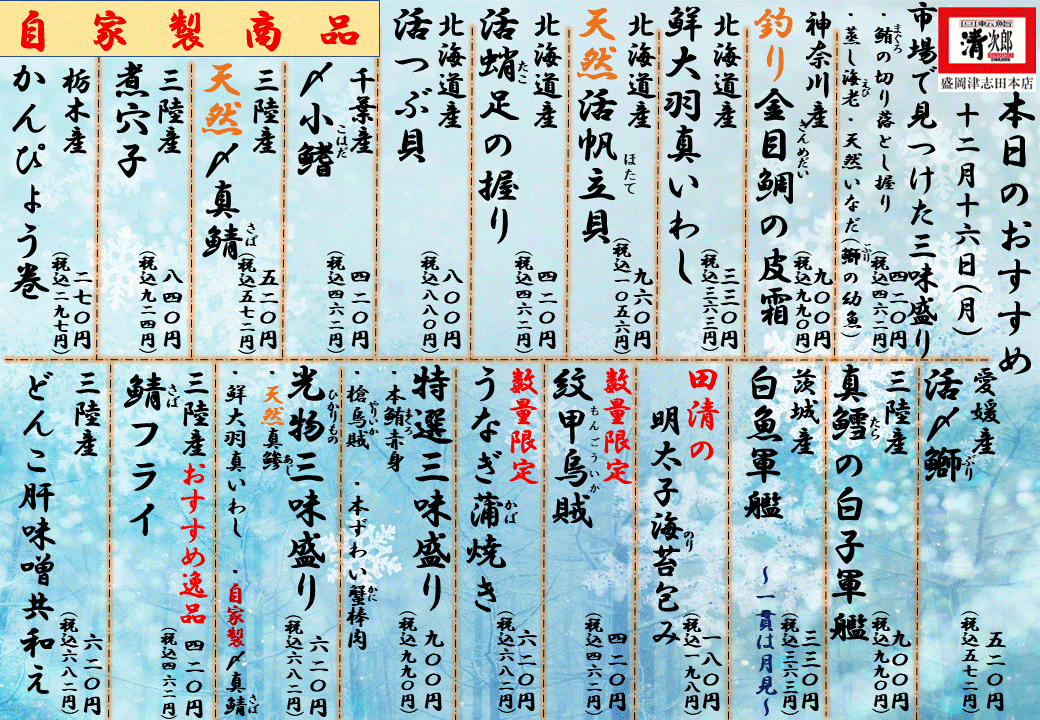 回転鮨
清次郎
盛岡津志田本店
本日のおすすめ
十二月十六日(月)
市場で見つけた三味盛り
・鮪の切り落とし握り
まぐろ
・蒸し海老・天然いなだ(鰤の幼魚)
えび
ぶり
四二〇円
(税込四六二円)
神奈川産
釣り金目鯛の皮霜
きんめだい
九〇〇円
(税込九九〇円)
北海道産
鮮大羽真いわし
三三〇円
(税込三六三円)
北海道産
天然活帆立貝
ほたて
九六〇円
(税込一〇五六円)
北海道産
活蛸足の握り
たこ
四二〇円
(税込四六二円)
北海道産
活つぶ貝
八〇〇円
(税込八八〇円)
自家製商品
千葉産
〆小鰭
こはだ
四二〇円
(税込四六二円)
三陸産
天然〆真鯖
さば
五二〇円
(税込五七二円)
三陸産
煮穴子
八四〇円
(税込九二四円)
栃木産
かんぴょう巻
二七〇円
(税込二九七円)
愛媛産
活〆鰤
ぶり
五二〇円
(税込五七二円)
三陸産
真鱈の白子軍艦
たら
九〇〇円
(税込九九〇円)
茨城産
白魚軍艦
～一貫は月見～
三三〇円
(税込三六三円)
田清の
明太子海苔包み
のり
一八〇円
(税込一九八円)
数量限定
紋甲烏賊
もんごういか
四二〇円
(税込四六二円)
数量限定
うなぎ蒲焼き
かば
六二〇円
(税込六八二円)
特選三味盛り
・本鮪赤身
まぐろ
・槍烏賊
やりいか
・本ずわい蟹棒肉
かに
九〇〇円
(税込九九〇円)
光物三味盛り
ひかりもの
・天然真鯵
あじ
・鮮大羽真いわし
・自家製〆真鯖
さば
六二〇円
(税込六八二円)
三陸産おすすめ逸品
鯖フライ
さば
四二〇円
(税込四六二円)
三陸産
どんこ肝味噌共和え
六二〇円
(税込六八二円)